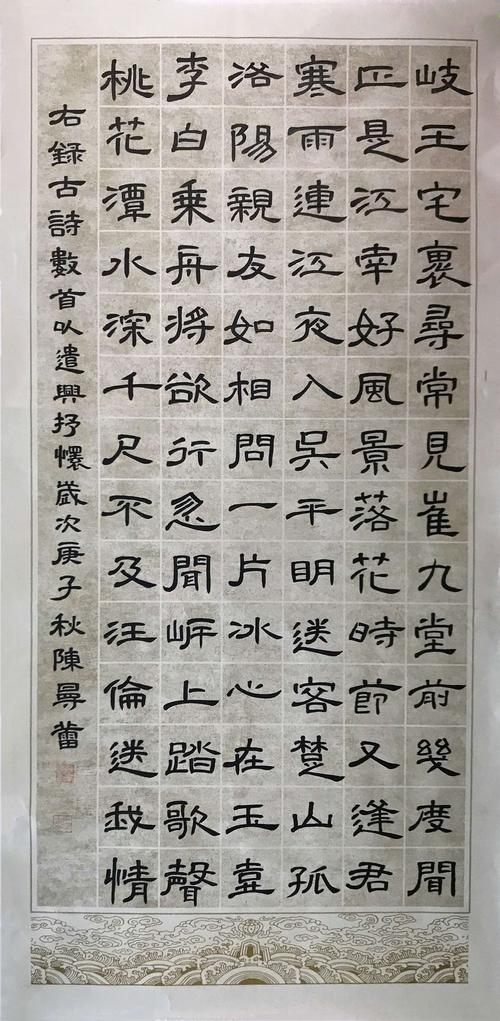 岐王宅裏尋常見崔九堂前幾度聞
正是江南好風景落花時節又逢君
寒雨連江夜入吳平明送客楚山孤
洛陽親友如相問一片冰心在玉壺
李白乘舟將欲行忽聞岸上踏歌聲
桃花潭水深千尺不及汪倫送我情
右錄古詩數首以遣興抒懷歲次庚子秋陳㝷蕾